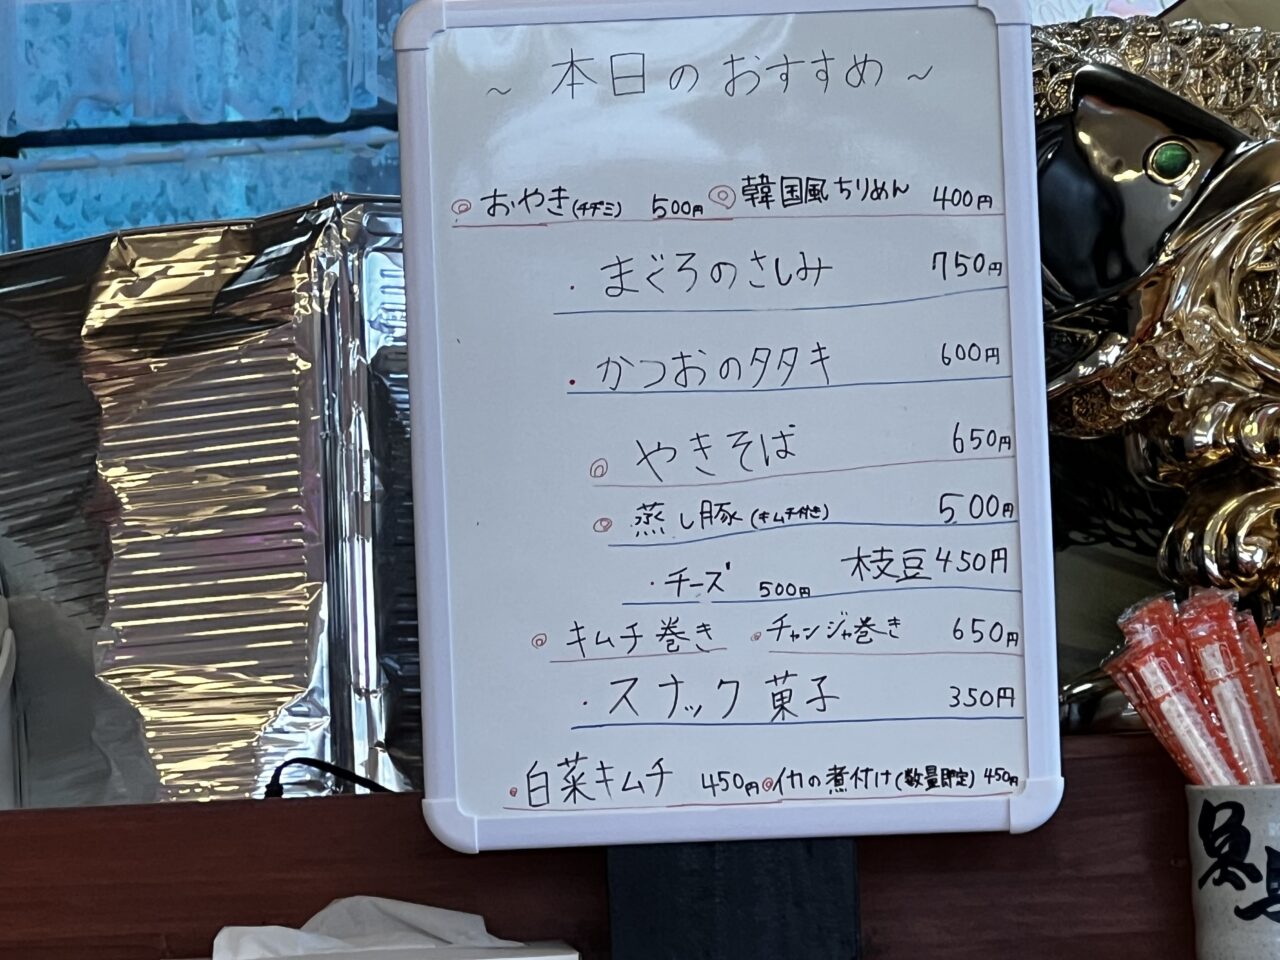 ～ 本日のおすすめ ～
◎ おやき(チヂミ) 500円 ◎ 韓国風ちりめん 400円
・まぐろのさしみ 750円
・かつおのタタキ 600円
◎ やきそば 650円
◎ 蒸し豚(キムチ付き) 500円
・チーズ 500円 枝豆 450円
◎ キムチ巻き ◎ チャンジャ巻き 650円
・スナック菓子 350円
・白菜キムチ 450円 ◎ イカの煮付け(数量限定) 450円